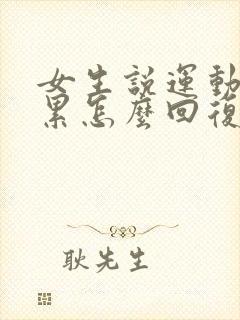 女生説運動
累怎麽回復
耿先生